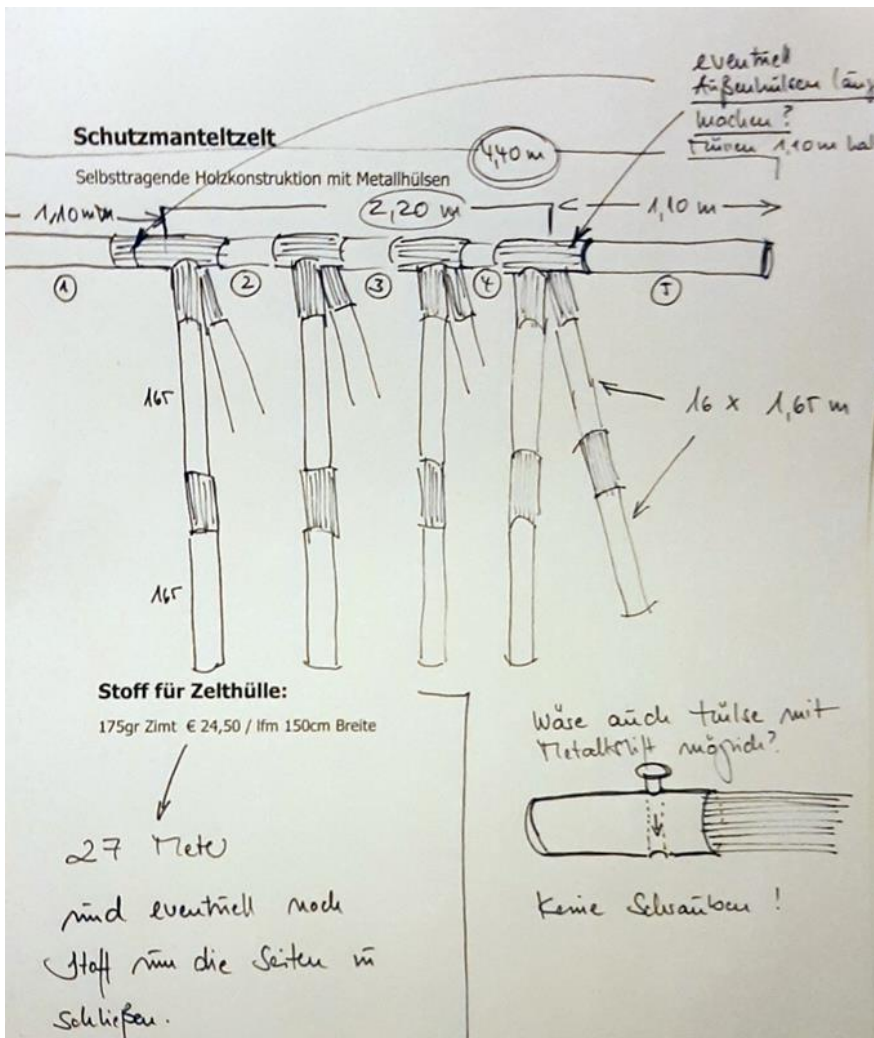 eventuell
Außenhülsen läng
machen?
müssen 1,10m hal
Schutzmanteltzelt
4,40 m
Selbsttragende Holzkonstruktion mit Metallhülsen
1,10 m
2,20 m
1,10 m
1
2
3
4
5
165
16 x 1,65 m
165
Stoff für Zelthülle:
175gr Zimt € 24,50 / lfm 150cm Breite
27 Meter
und eventuell noch
Stoff um die Seiten zu
schließen.
Wäre auch Hülse mit
Metallstift möglich?
Keine Schrauben!